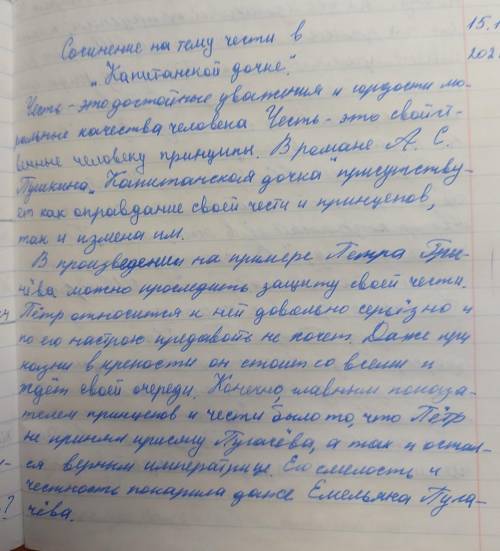 15.1
202
Сочинение на тему чести в
"Капитанской дочке".
Честь - это достойные уважения и гордости мо-
ральные качества человека. Честь - это свойст-
венные человеку принципы. В романе А. С.
Пушкина "Капитанская дочка" присутству-
ет как оправдание своей чести и принцепов,
так и измена им.
В произведении на примере Петра Гри-
нёва можно проследить защиту своей чести.
Пётр относится к ней довольно серьёзно и
по его настрою предавать не хочет. Даже при
казни в крепости он стоит со всеми и
ждёт своей очереди. Конечно, главным показа-
телем принцепов и чести было то, что Пётр
не принял присягу Пугачёва, а так и остал-
ся верным императрице. Его смелость и
честность покарила даже Емельяна Пуга-
чёва.
?